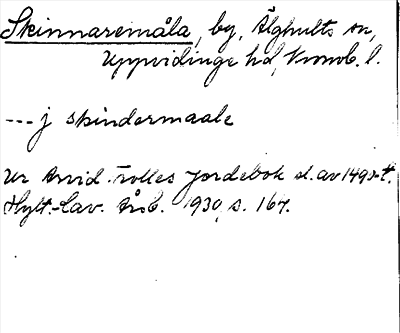 Skinnaremåla, by, Älghults sn,
Uppvidinge hd, Kronob. l.
--- j skindermaale
Ur Arvid Trolles Jordebok sl. av 1490-t.
Hylt.-Cav. Årsb. 1930, s. 167.